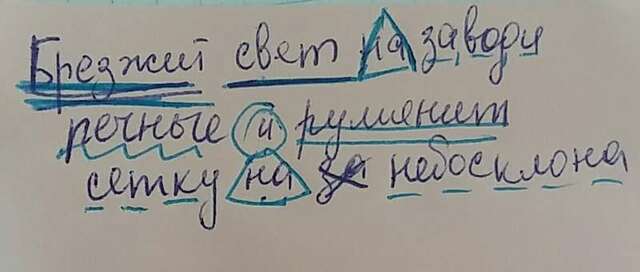 Брезжит свет на заводи
речные и румянит
сетку на за небосклона